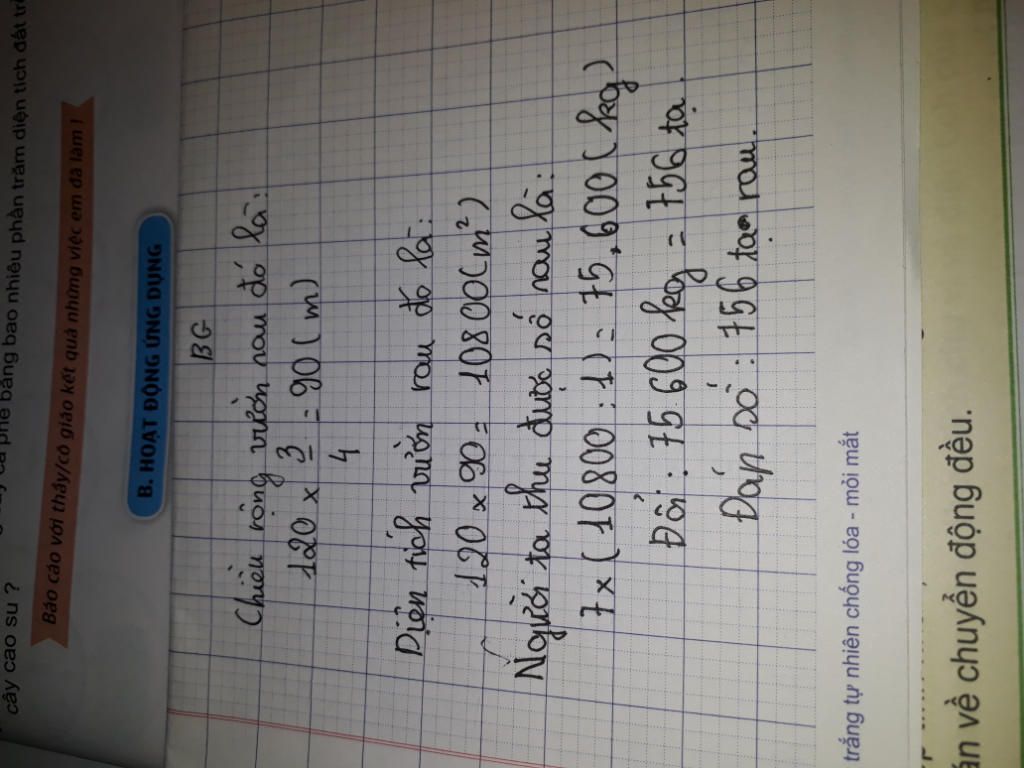 cây cao su ?
phê bằng bao nhiêu phần trăm diện tích đất
Báo cáo với thầy/cô giáo kết quả những việc em đã làm !
B. HOẠT ĐỘNG ỨNG DỤNG
BG
Chiều rộng vườn rau đó là:
120 x 3/4 = 90 (m)
Diện tích vườn rau đó là:
120 x 90 = 10800 (m²)
Người ta thu được số rau là:
7 x (10800 : 1) = 75,600 (kg)
Đổi : 75 600 kg = 756 tạ.
Đáp số : 756 tạ rau.
trắng tự nhiên chống lóa - mỏi mắt
án về chuyển động đều.